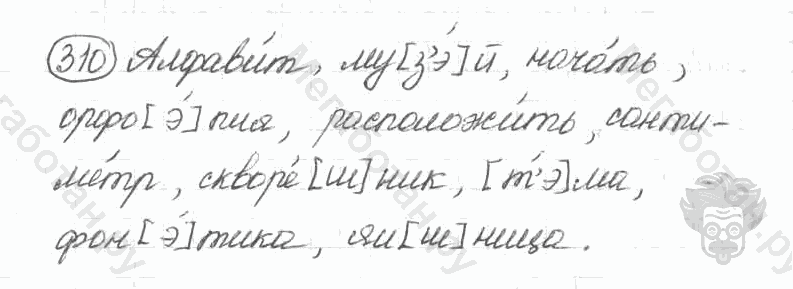 310 Алфави́т, му[з'э́]й, нача́ть,
орфо[э́]пия, расположи́ть, санти-
ме́тр, скворе́[ш]ник, [т'э]ма,
фон[э́]тика, яи[ш]ница.
Мегаботан.ру